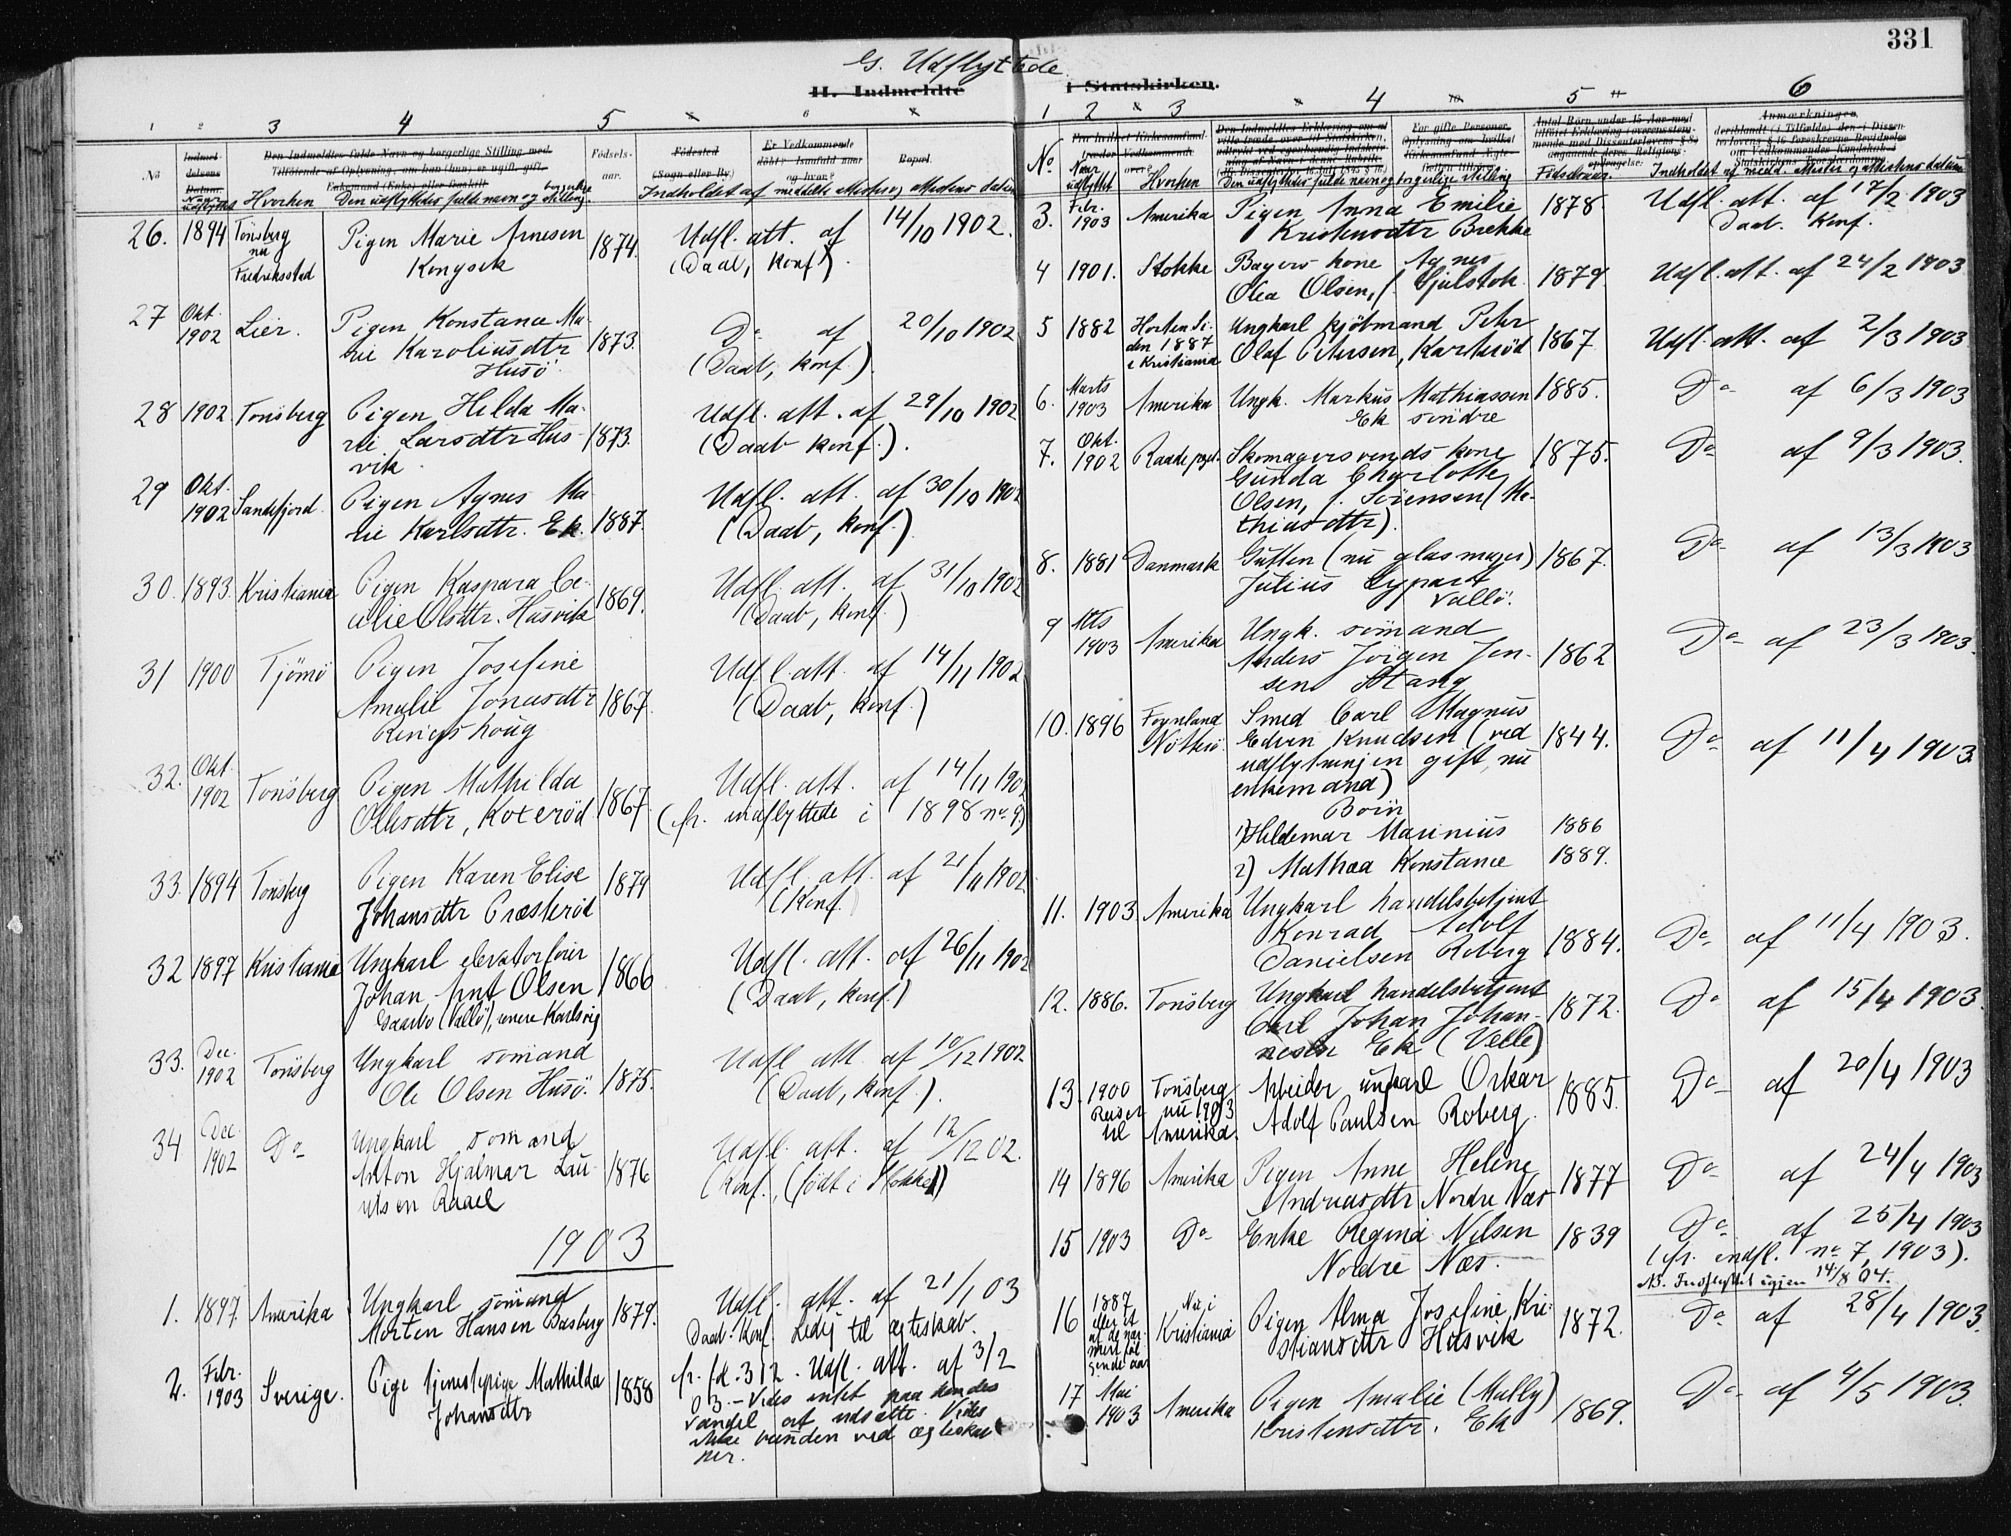 331
G. Udflyttede
II. Indmeldte i Statskirken.
1 2 3 4 5 6
No
Hvorhen
Den udflyttedes fulde navn og borgerlige stilling.
Fødselsaar.
Indholdet af meddelte attester og attestens datum
26. 1894 Tønsberg nu Fredriksstad Pigen Marie Arnesen 1874. Udfl. att. af 14/10 1902.
(Daab, konf.).
27 Okt. 1902 Lier. Pigen Konstance Ma-
rie Karoliusdtr Husø. 1873. Do af 20/10 1902
(Daab, konf.).
28 1902 Tønsberg Pigen Hilda Ma-
rie Larsdtr Hus-
vik. 1873. Udfl. att. af 29/10 1902
(Daab konf.).
29 Okt. 1902 Sandefjord. Pigen Agnes Ma-
rie Karlsdtr. Ek. 1887. Udfl. att. af 30/10 1902
(Daab, konf.)
30. 1893. Kristiania Pigen Kaspara Ce-
cilie Olsdtr. Husvik 1869. Udfl. att. af 31/10 1902
(Daab, konf.)
31 1900 Tjømø Pigen Josefine
Amalie Jonasdtr
Ringshoug 1867. Udfl. att. af 14/11 1902
(Daab, konf.)
32. Okt. 1902 Tønsberg Pigen Mathilda
Ollesdtr, Koterød 1867. Udfl. att. af 14/11 1902
(fr. indflyttede i 1898 no 9)
33. 1894 Tønsbg Pigen Karen Elise
Johansdtr Præsterød 1879 Udfl. att. af 21/11 1902
(Konf.
32 1897 Kristiania Ungkarl elevatorfører
Johan Arnt Olsen
Gaarbo (Vallø), senere Karlsvig 1866 Udfl. att. af 26/11 1902
(Daab, konf.)
33. Dec. 1902 Tønsberg Ungkarl sømand
Ole Olsen Husø. 1875. Udfl. att. af 10/12 1902
(Daab, konf.).
34 Dec. 1902 Do Ungkarl sømand
Anton Hjalmar Lau-
ritsen Raael 1876 Udfl. att. af 12/12 02.
(Konf., (født i Stokke))
1903
1. 1897. Amerika Ungkarl sømand
Morten Hansen Basberg 1879. Udfl. att. af 21/1 03
Daab. Konf. Ledig til ægteskab.
2. Febr. 1903 Sverige. Pige tjenestepige Mathilda
Johansdtr 1858 fr. fol. 312. Udfl. att. af 3/2
03. – Vides intet paa hendes
vandel at udsætte. Vides
ikke bunden ved ægteska-
ber.
3. Febr. 1903 Amerika Pigen Anna Emilie
Kristensdtr Brekke 1878. Udfl. att. af 17/2 1903
Daab. Konf.
4 1901. Stokke Bagers kone Agnes
Olea Olsen, f. Gjulstok 1879 Udfl. att. af 24/2 1903
5 1882 Horten Si-
den 1887
i Kristiania Ungkarl kjøbmand Petr
Olaf Petersen, Karterød 1867 Udfl. att. af 2/3 1903
6. Marts 1903 Amerika Ungk. Markus Mathiassen
Ek søndre 1885. Do af 6/3 1903
7. Okt. 1902 Raade pgd. Skomagersvends kone
Gunda Charlotte
Olsen, f. Sørensen (Ma-
thiasdtr). 1875. Do af 9/3 1903.
8. 1881 Danmark Gutten (nu glasmager)
Julius Lypart
Vallø. 1867. Do af 13/3 1903
9 Mts 1903 Amerika Ungk. sømand
Anders Jørgen Jen-
sen Stang 1862 Do af 23/3 1903.
10. 1896 Føynland Nøtterø. Smed Carl Magnus
Edvin Knudsen (ved
udflytningen gift, nu
enkemand) 1844. Do af 11/4 1903.
Børn
1) Hildemar Marinius 1886
2) Mathea Konstance 1889.
11. 1903 Amerika Ungkarl handelsbetjent
Konrad Adolf
Danielsen Roberg 1884. Do af 11/4 1903.
12. 1886. Tønsberg Ungkarl handelsbetjent
Carl Johan Johan-
nesen Ek (Velle) 1872. Do af 15/4 1903.
13. 1900 Reiser til Tønsberg nu 1903 Amerika. Arbeider ungkarl Oskar
Adolf Paulsen Roberg. 1885. Do af 20/4 1903
14 1896 Amerika Pigen Anne Helene
Andreasdtr Nordre Næs 1877 Do af 24/4 1903
15 1903 Do Enke Regina Nilsen
Nordre Næs. 1839 Do af 25/4 1903
(fr. indfl. no 7, 1903).
NB. Indflyttet igjen 14/8 04.
16 1887
eller et
af de nær-
mest føl-
gende aar Nu i
Kristiania Pigen Alma Josefine Kri-
stiansdtr Husvik 1872. Do af 28/4 1903.
17 Mai 1903 Amerika Pigen Amalie (Mally)
Kristensdtr. Ek 1869. Do af 4/5 1903.